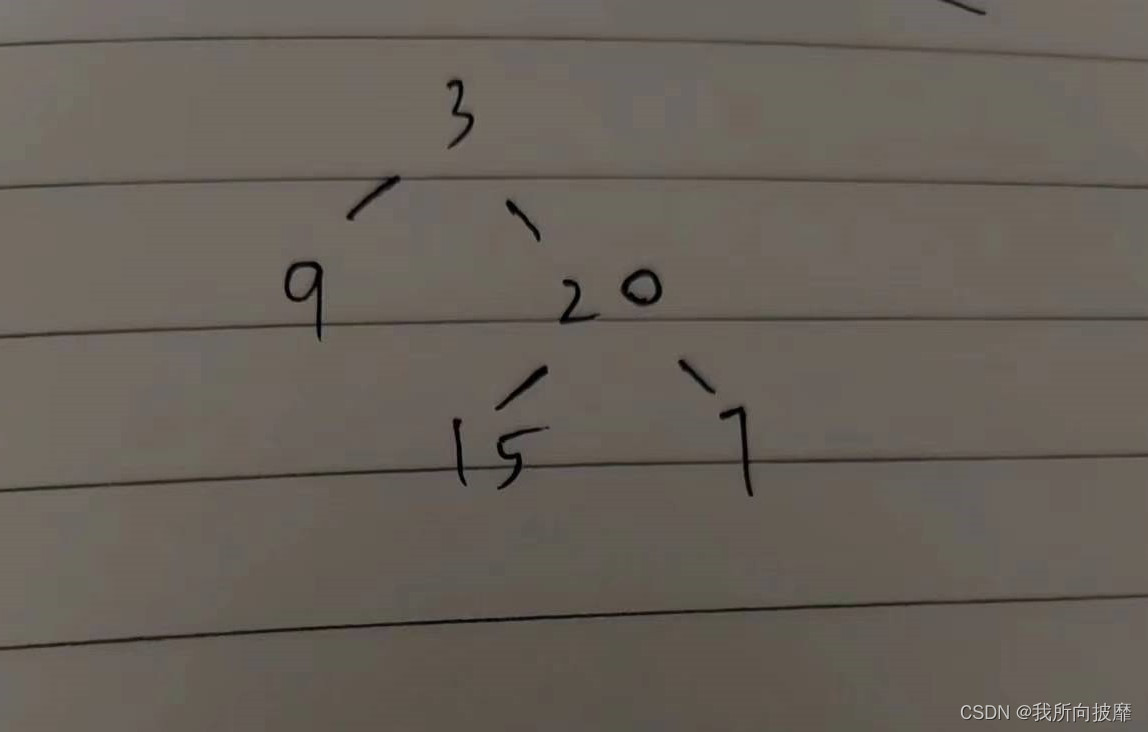 3
9 20
15 7
CSDN @我所向披靡